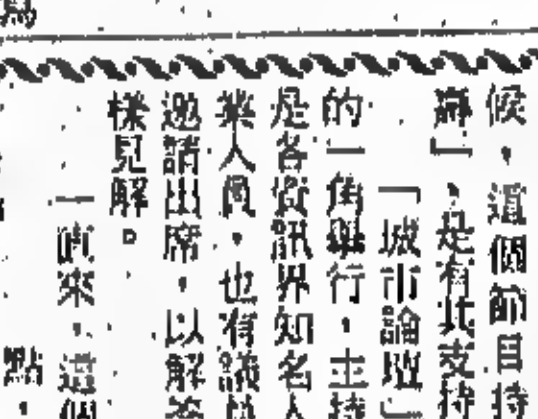 候，這個節目持
辯」、是有此支持
「城市論壇」
的一角舉行，主持
是各資訊界知名人
業人員，也有議員
邀請出席，以解答
樣見解。
一直來，這個
點，